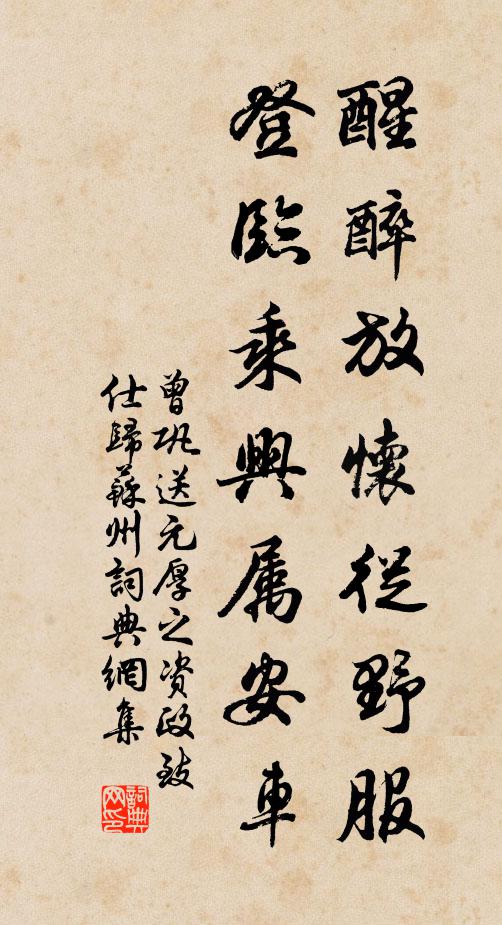 醒醉放懷從野服
登臨乘興屬安車
曾巩送元厚之资政致
仕歸蘇州詞典網集
詞典网印